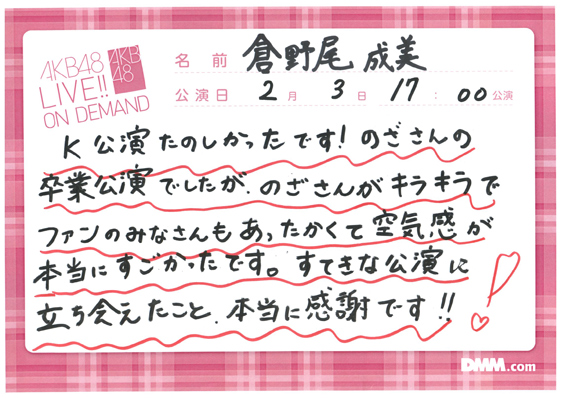 AKB48
LIVE!!
ON DEMAND
AKB
48
名前 倉野尾 成美
公演日 2月 3日 17:00公演
K公演たのしかったです!のざさんの
卒業公演でしたが、のざさんがキラキラで
ファンのみなさんもあったかくて空気感が
本当にすごかったです。すてきな公演に
立ち会えたこと、本当に感謝です!!
DMM.com